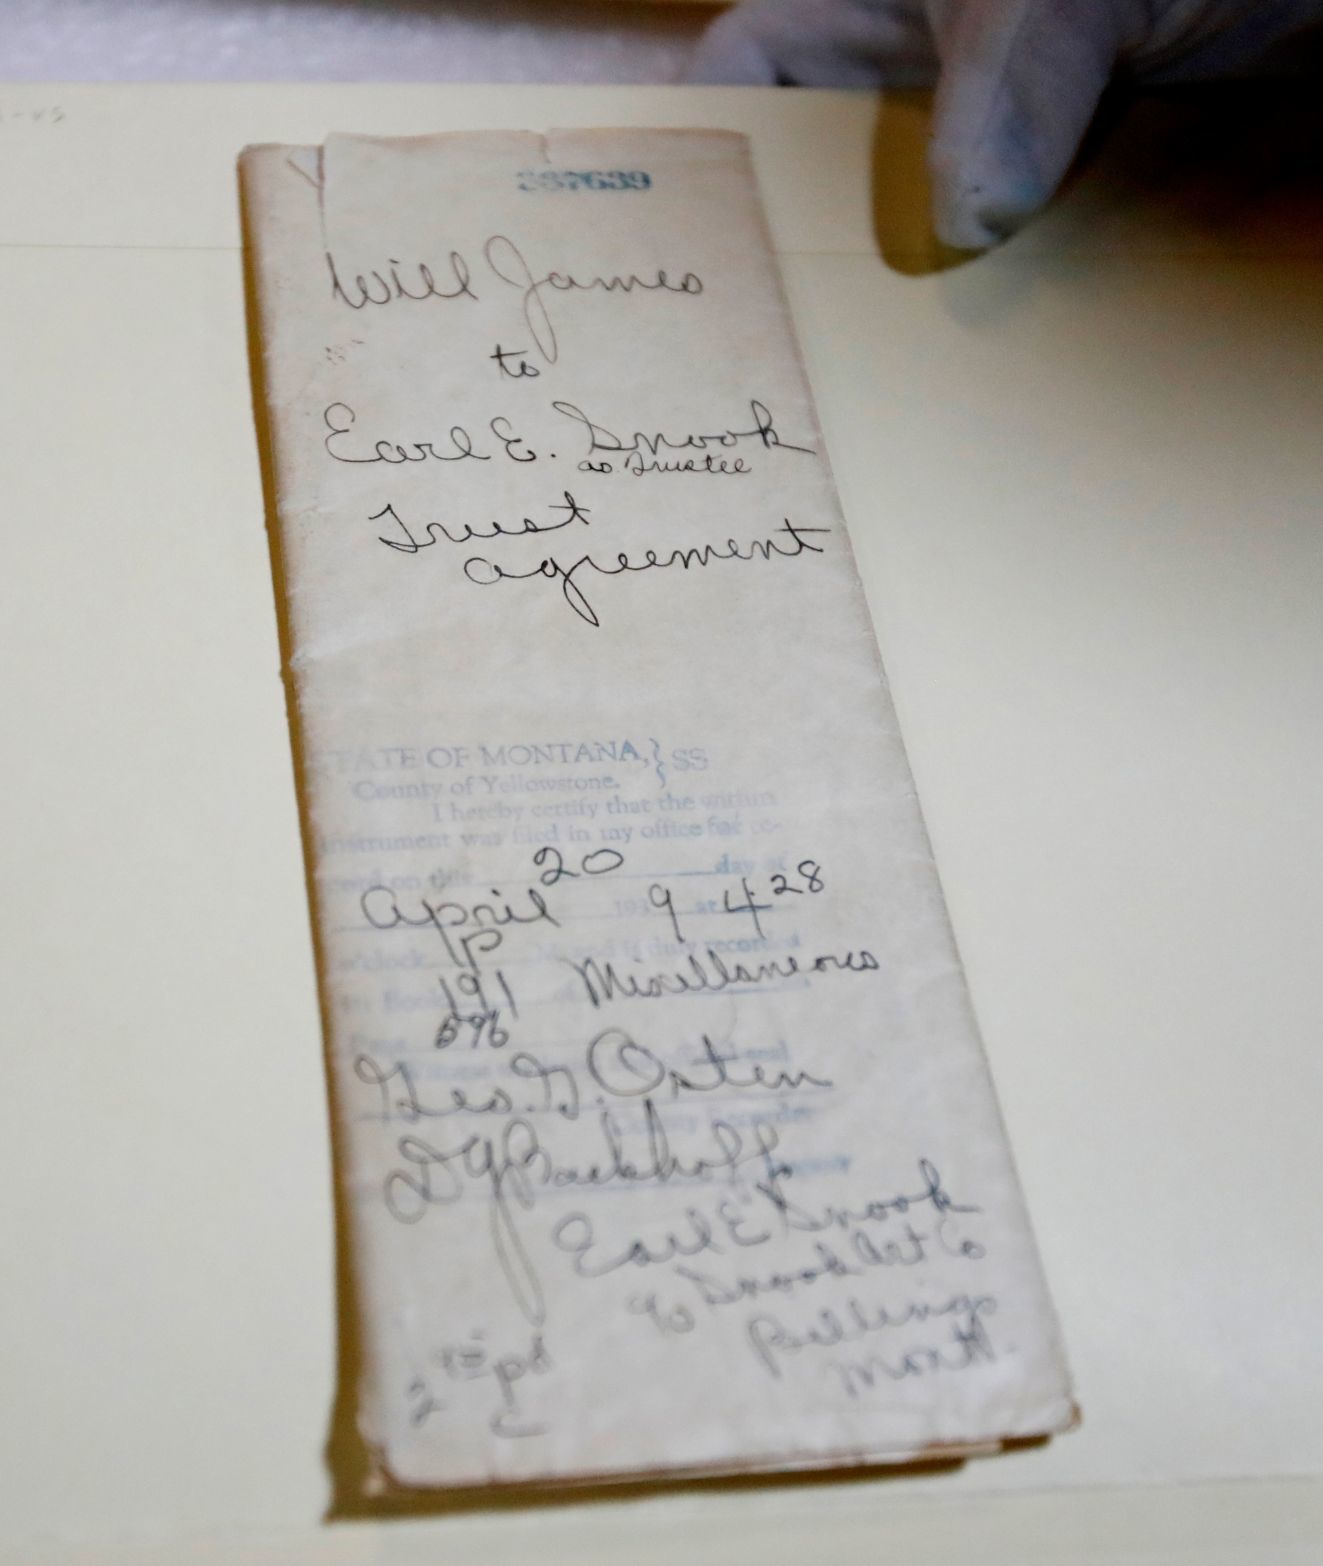 387639
Will James
to
Earl E. Snook
as Trustee
Trust
agreement
TATE OF MONTANA, } SS
County of Yellowstone.
I hereby certify that the within
instrument was filed in my office for re-
cord on this 20 day of
April 193 9 at 4 28
o'clock P M. and is duly recorded
in Book 191 of Miscellaneous
Page 596
Geo. G. Osten
County Recorder
D J Backhoff
Earl E Snook
c/o Snook Art Co
Billings
Mont.
2 pd